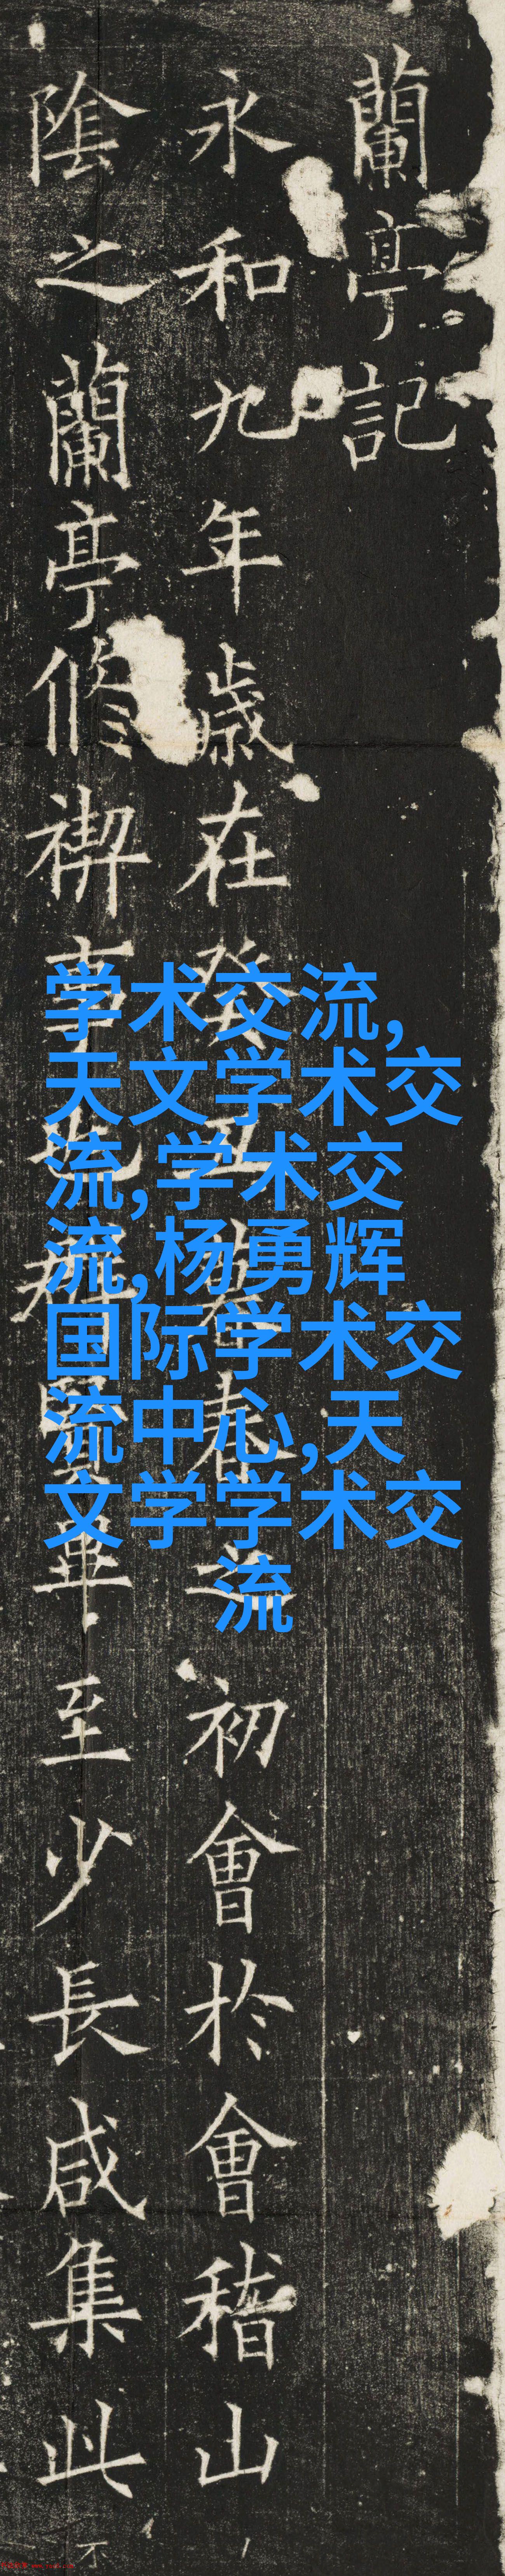 蘭亭記
永和九年歲在癸丑暮春之初會於會稽山
陰之蘭亭脩禊事也群賢畢至少長咸集此
学术交流,
天文学术交
流,学术交
流,杨勇辉
国际学术交
流中心,天
文学学术交
流